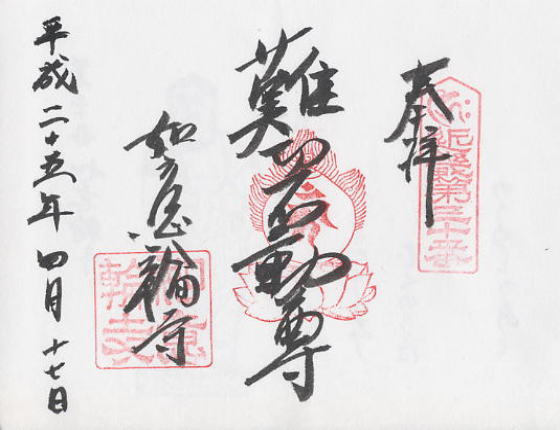 奉拝
近畿第三十番
難切不動尊
如意輪寺
如意輪寺
平成二十五年四月十七日